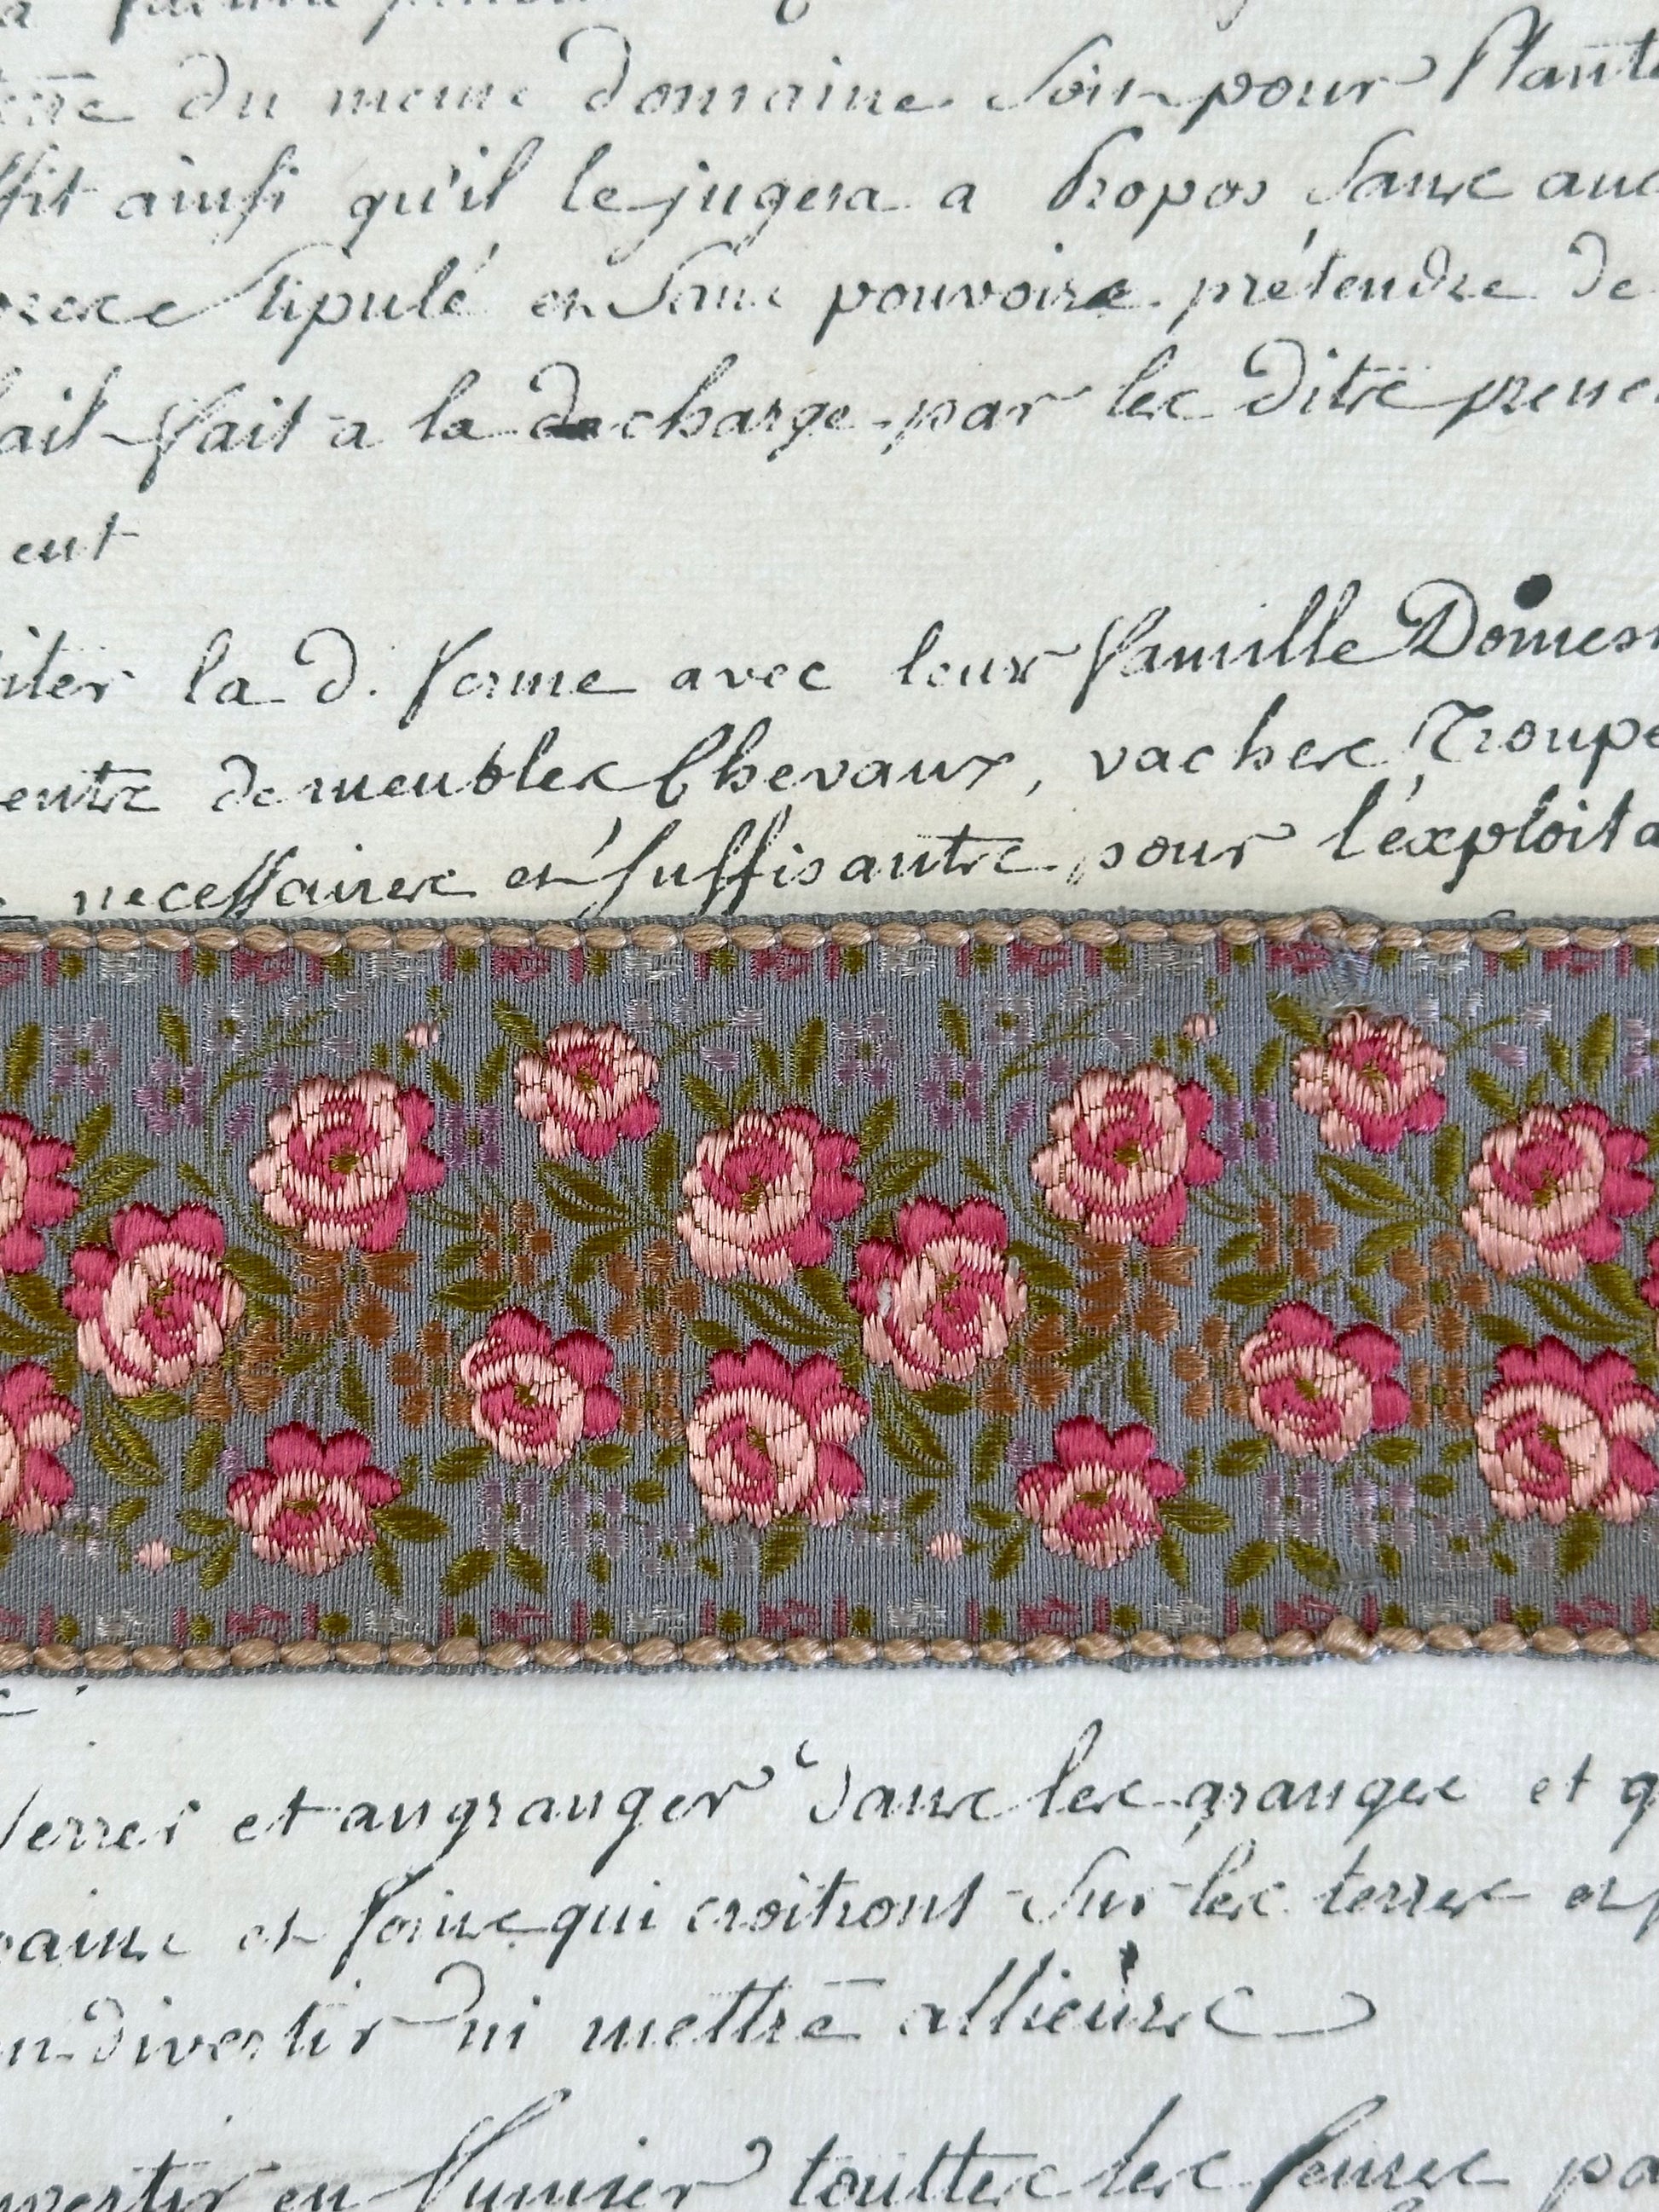 du meme domaine Soit pour Plante
ffit ainsi qu'il le jugera a Propos Sans auc
Stipulé et Sans pouvoire prétendre de
ait fait a la decharge par les Dits prene
ent
iter la d. ferme avec leur famille Domest
ents de meubles Chevaux, vaches Troupe
necessaires et Suffisants pour l'éxploita
Terres et angranger dans les granges et q
ains et foins qui croitront Sur les terres et p
divertir ni mettre allieurs
vertir en fumier touttes les feures pa